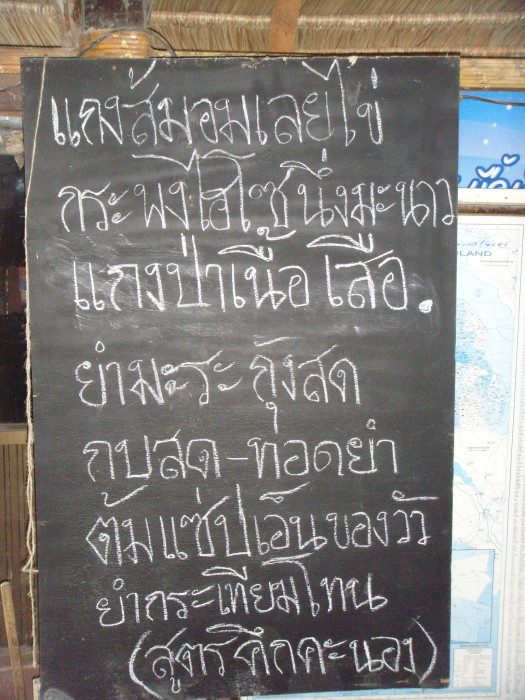 แกงส้มอมเลยไข่
กระพงไฮโซนึ่งมะนาว
แกงป่าเนื้อเสือ.
ยำมะระกุ้งสด
กบสด-ทอดยำ
ต้มแซ่ปเอ็นของวัว
ยำกระเทียมโทน
(สูตรคึกคะนอง)
LAND